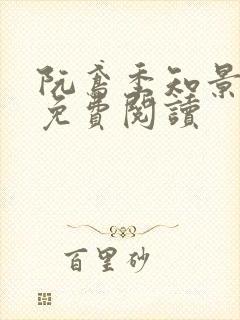 阮鳶季知景
免費閱讀
百里砂